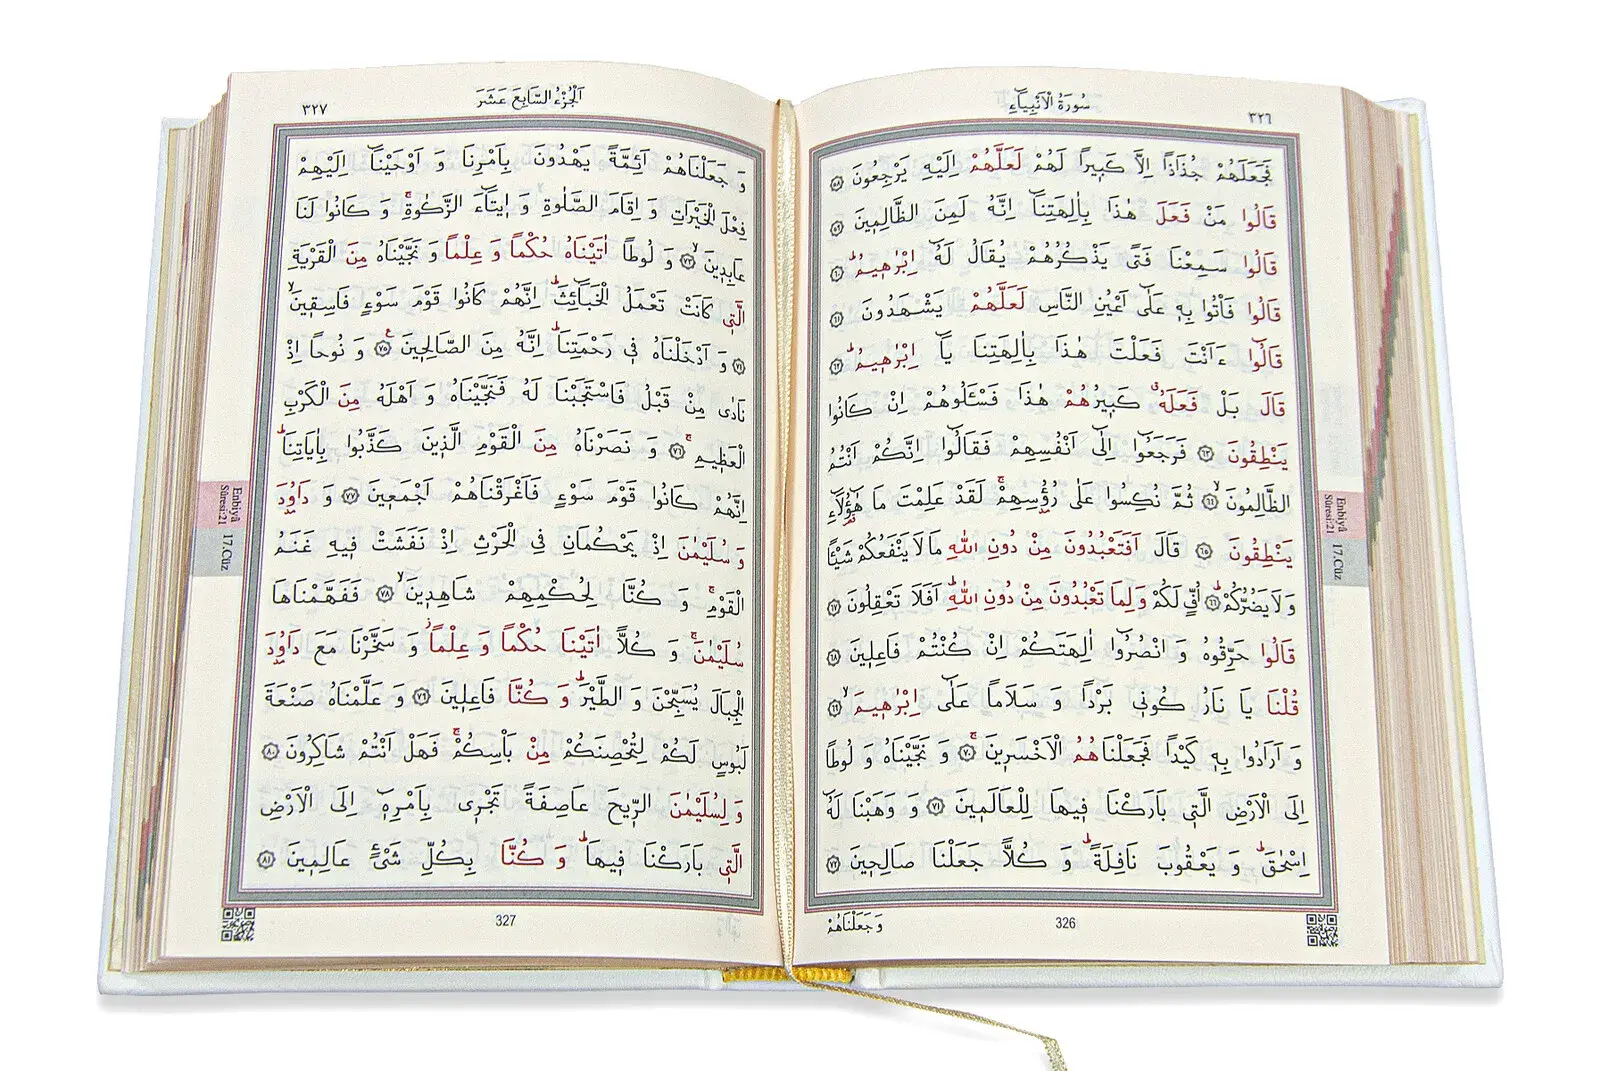 ٣٢٦
سُورَةُ الْاَنْبِيَٓاءِ
فَجَعَلَهُمْ جُذَاذًا اِلَّا كَب۪يرًا لَهُمْ لَعَلَّهُمْ اِلَيْهِ يَرْجِعُونَ ﴿٥٨﴾
قَالُوا مَنْ فَعَلَ هٰذَا بِاٰلِهَتِنَٓا اِنَّهُ لَمِنَ الظَّالِم۪ينَ ﴿٥٩﴾
قَالُوا سَمِعْنَا فَتًى يَذْكُرُهُمْ يُقَالُ لَهُٓ اِبْرٰه۪يمُۜ ﴿٦٠﴾
قَالُوا فَأْتُوا بِه۪ عَلٰٓى اَعْيُنِ النَّاسِ لَعَلَّهُمْ يَشْهَدُونَ ﴿٦١﴾
قَالُٓوا ءَاَنْتَ فَعَلْتَ هٰذَا بِاٰلِهَتِنَا يَٓا اِبْرٰه۪يمُۜ ﴿٦٢﴾
قَالَ بَلْ فَعَلَهُۗ كَب۪يرُهُمْ هٰذَا فَسْـَٔلُوهُمْ اِنْ كَانُوا
يَنْطِقُونَ ﴿٦٣﴾ فَرَجَعُٓوا اِلٰٓى اَنْفُسِهِمْ فَقَالُٓوا اِنَّكُمْ اَنْتُمُ
الظَّالِمُونَۙ ﴿٦٤﴾ ثُمَّ نُكِسُوا عَلٰى رُؤُ۫سِهِمْۚ لَقَدْ عَلِمْتَ مَا هٰٓؤُ۬لَٓاءِ
يَنْطِقُونَ ﴿٦٥﴾ قَالَ اَفَتَعْبُدُونَ مِنْ دُونِ اللّٰهِ مَا لَا يَنْفَعُكُمْ شَيْـًٔا
وَلَا يَضُرُّكُمْۜ ﴿٦٦﴾ اُفٍّ لَكُمْ وَلِمَا تَعْبُدُونَ مِنْ دُونِ اللّٰهِۜ اَفَلَا تَعْقِلُونَ ﴿٦٧﴾
قَالُوا حَرِّقُوهُ وَانْصُرُٓوا اٰلِهَتَكُمْ اِنْ كُنْتُمْ فَاعِل۪ينَ ﴿٦٨﴾
قُلْنَا يَا نَارُ كُون۪ي بَرْدًا وَسَلَامًا عَلٰٓى اِبْرٰه۪يمَۙ ﴿٦٩﴾
وَاَرَادُوا بِه۪ كَيْدًا فَجَعَلْنَاهُمُ الْاَخْسَر۪ينَۚ ﴿٧٠﴾ وَنَجَّيْنَاهُ وَلُوطًا
اِلَى الْاَرْضِ الَّت۪ي بَارَكْنَا ف۪يهَا لِلْعَالَم۪ينَ ﴿٧١﴾ وَوَهَبْنَا لَهُٓ
اِسْحٰقَۜ وَيَعْقُوبَ نَافِلَةًۜ وَكُلًّا جَعَلْنَا صَالِح۪ينَ ﴿٧٢﴾
وَجَعَلْنَاهُمْ
326
Enbiyâ
Sûresi:21
17.Cüz
اَلْجُزْءُ السَّابِعَ عَشَرَ
٣٢٧
وَجَعَلْنَاهُمْ اَئِمَّةً يَهْدُونَ بِاَمْرِنَا وَاَوْحَيْنَٓا اِلَيْهِمْ
فِعْلَ الْخَيْرَاتِ وَاِقَامَ الصَّلٰوةِ وَا۪يتَٓاءَ الزَّكٰوةِۚ وَكَانُوا لَنَا
عَابِد۪ينَۙ ﴿٧٣﴾ وَلُوطًا اٰتَيْنَاهُ حُكْمًا وَعِلْمًا وَنَجَّيْنَاهُ مِنَ الْقَرْيَةِ
الَّت۪ي كَانَتْ تَعْمَلُ الْخَبَٓائِثَۜ اِنَّهُمْ كَانُوا قَوْمَ سَوْءٍ فَاسِق۪ينَۙ
﴿٧٤﴾ وَاَدْخَلْنَاهُ ف۪ي رَحْمَتِنَاۜ اِنَّهُ مِنَ الصَّالِح۪ينَ۟ ﴿٧٥﴾ وَنُوحًا اِذْ
نَادٰى مِنْ قَبْلُ فَاسْتَجَبْنَا لَهُ فَنَجَّيْنَاهُ وَاَهْلَهُ مِنَ الْكَرْبِ
الْعَظ۪يمِۚ ﴿٧٦﴾ وَنَصَرْنَاهُ مِنَ الْقَوْمِ الَّذ۪ينَ كَذَّبُوا بِاٰيَاتِنَاۜ
اِنَّهُمْ كَانُوا قَوْمَ سَوْءٍ فَاَغْرَقْنَاهُمْ اَجْمَع۪ينَ ﴿٧٧﴾ وَدَاوُ۫دَ
وَسُلَيْمٰنَ اِذْ يَحْكُمَانِ فِي الْحَرْثِ اِذْ نَفَشَتْ ف۪يهِ غَنَمُ
الْقَوْمِۚ وَكُنَّا لِحُكْمِهِمْ شَاهِد۪ينَۙ ﴿٧٨﴾ فَفَهَّمْنَاهَا
سُلَيْمٰنَۚ وَكُلًّا اٰتَيْنَا حُكْمًا وَعِلْمًاۘ وَسَخَّرْنَا مَعَ دَاوُ۫دَ
الْجِبَالَ يُسَبِّحْنَ وَالطَّيْرَۜ وَكُنَّا فَاعِل۪ينَ ﴿٧٩﴾ وَعَلَّمْنَاهُ صَنْعَةَ
لَبُوسٍ لَكُمْ لِتُحْصِنَكُمْ مِنْ بَأْسِكُمْۚ فَهَلْ اَنْتُمْ شَاكِرُونَ ﴿٨٠﴾
وَلِسُلَيْمٰنَ الرّ۪يحَ عَاصِفَةً تَجْر۪ي بِاَمْرِه۪ٓ اِلَى الْاَرْضِ
الَّت۪ي بَارَكْنَا ف۪يهَاۜ وَكُنَّا بِكُلِّ شَيْءٍ عَالِم۪ينَ ﴿٨١﴾
327
Enbiyâ
Sûresi:21
17.Cüz